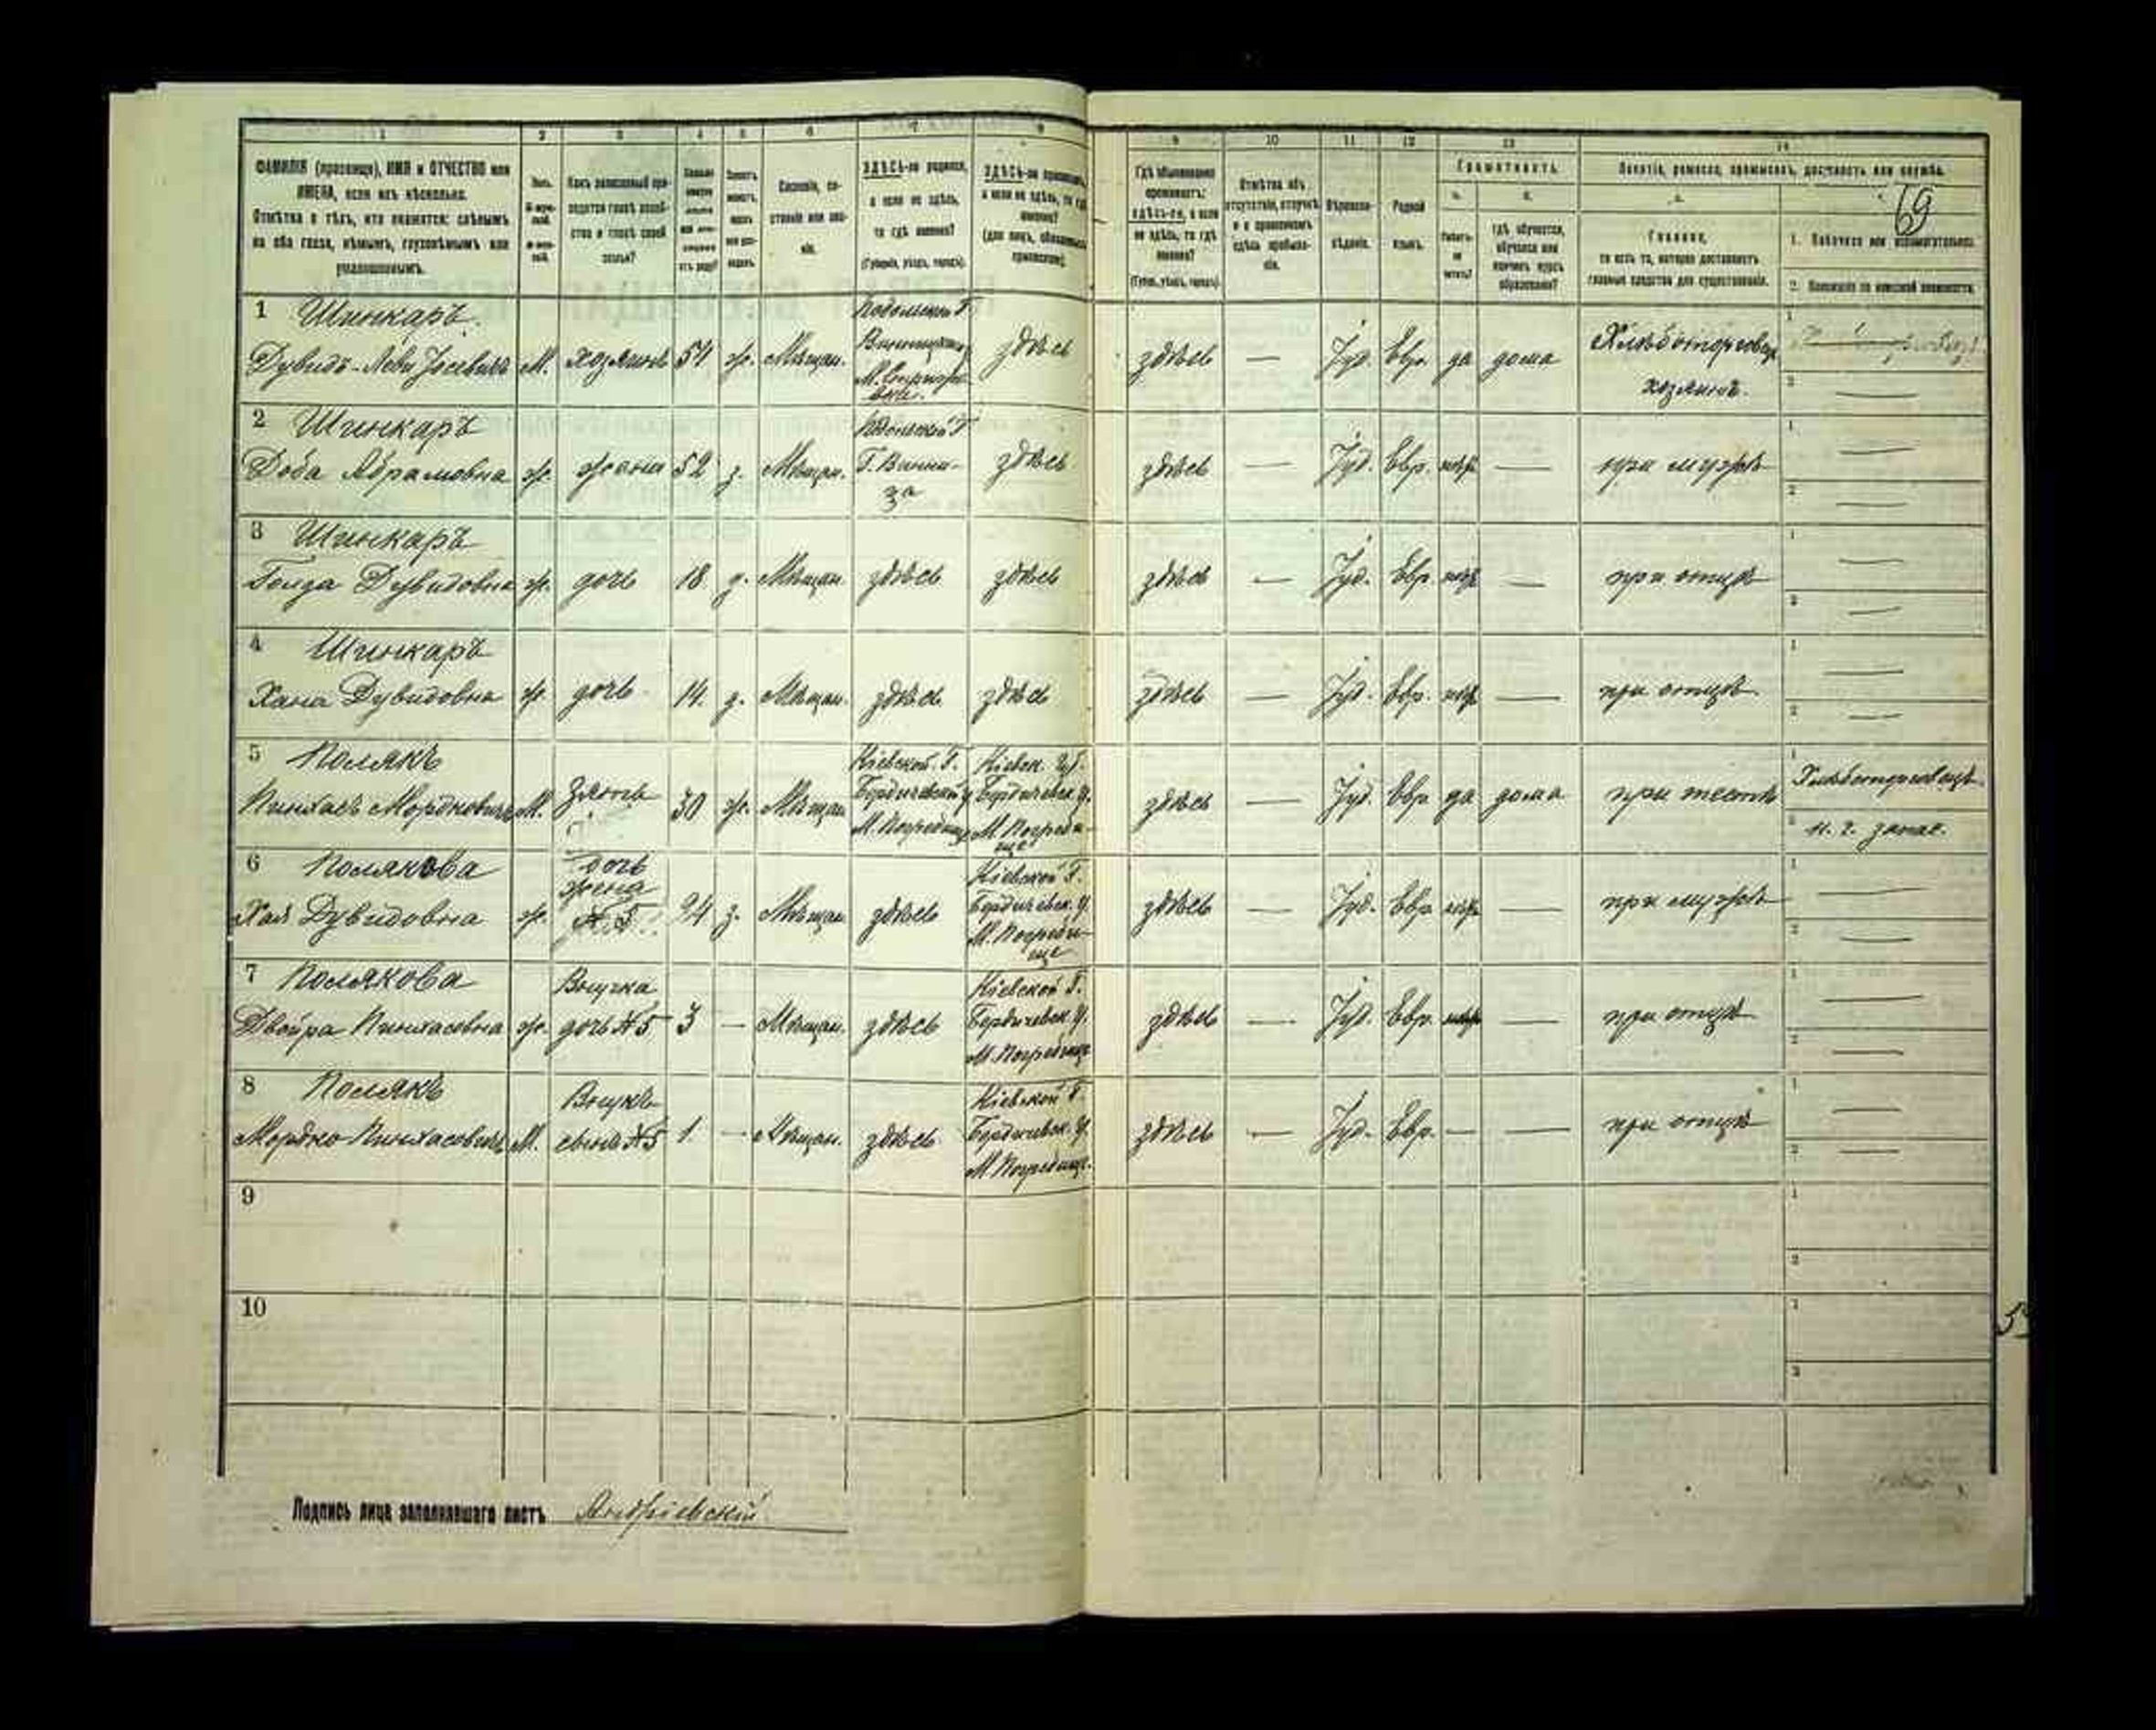 1 2 3 4 5 6 7 8 9 10 11 12 13 14
ФАМИЛІЯ (прозвище), ИМЯ и ОТЧЕСТВО или
ИМЕНА, если ихъ нѣсколько.
Отмѣтка о тѣхъ, кто окажется: слѣпымъ
на оба глаза, нѣмымъ, глухонѣмымъ или
умалишеннымъ.
Какъ записанный при-
ходится главѣ хозяй-
ства и главѣ своей
семьи?
Сословіе, со-
стояніе или зва-
ніе.
ЗДѢСЬ-ли родился,
а если не здѣсь,
то гдѣ именно?
(Губернія, уѣздъ, городъ).
ЗДѢСЬ-ли приписанъ,
а если не здѣсь, то гдѣ
именно?
(для лицъ, обязанныхъ
припискою).
Гдѣ обыкновенно
проживаетъ:
здѣсь-ли, а если
не здѣсь, то гдѣ
именно?
(Губер., уѣздъ, городъ).
Отмѣтка объ
отсутствіи, отлучкѣ
и о временномъ
здѣсь пребыва-
ніи.
Вѣроиспо-
вѣданіе.
Родной
языкъ.
Грамотность.
а. б.
Умѣетъ-
ли
читать?
гдѣ обучается,
обучался или
кончилъ курсъ
образованія?
Занятіе, ремесло, промыселъ, должность или служба.
69
а.
Главное,
то есть то, которое доставляетъ
главныя средства для существованія.
1. Побочное или вспомогательное.
2. Положеніе по воинской повинности.
1 Шинкаръ
Дувидъ-Леви Іосевичъ М. хозяинъ 54 ж. Мѣщан. Подольской Г. здѣсь здѣсь — Іуд. Евр. да дома Хлѣботорговецъ
хозяинъ.
2 Шинкаръ
Доба Абрамовна ж. жена 52 з. Мѣщан. Подольской Г.
Г. Винни-
ца здѣсь здѣсь — Іуд. Евр. нѣтъ — при мужѣ
3 Шинкаръ
Голда Дувидовна ж. дочь 18 д. Мѣщан. здѣсь здѣсь здѣсь — Іуд. Евр. нѣтъ — при отцѣ
4 Шинкаръ
Хана Дувидовна ж. дочь 14 д. Мѣщан. здѣсь здѣсь здѣсь — Іуд. Евр. нѣтъ — при отцѣ
5 Полякъ
Пинхасъ Мордковичъ М. Зять 30 ж. Мѣщан. Кіевской Г.
Бердичевской у.
М. Погребище Кіевск. Губ.
Бердичевск. у.
М. Погреби-
ще здѣсь — Іуд. Евр. да дома при тестѣ Хлѣботорговецъ
н. ч. запас.
6 Полякова
Хая Дувидовна ж. дочь
жена
№ 5 24 з. Мѣщан. здѣсь Кіевской Г.
Бердичевск. у.
М. Погреби-
ще здѣсь — Іуд. Евр. нѣтъ — при мужѣ
7 Полякова
Двойра Пинхасовна ж. Внучка
дочь № 5 3 — Мѣщан. здѣсь Кіевской Г.
Бердичевск. у.
М. Погребище здѣсь — Іуд. Евр. нѣтъ — при отцѣ
8 Полякъ
Мордко Пинхасовичъ М. Внукъ
сынъ № 5 1 — Мѣщан. здѣсь Кіевской Г.
Бердичевск. у.
М. Погребище. здѣсь — Іуд. Евр. — — при отцѣ
9
10
Подпись лица заполнявшаго листъ Андріевскій